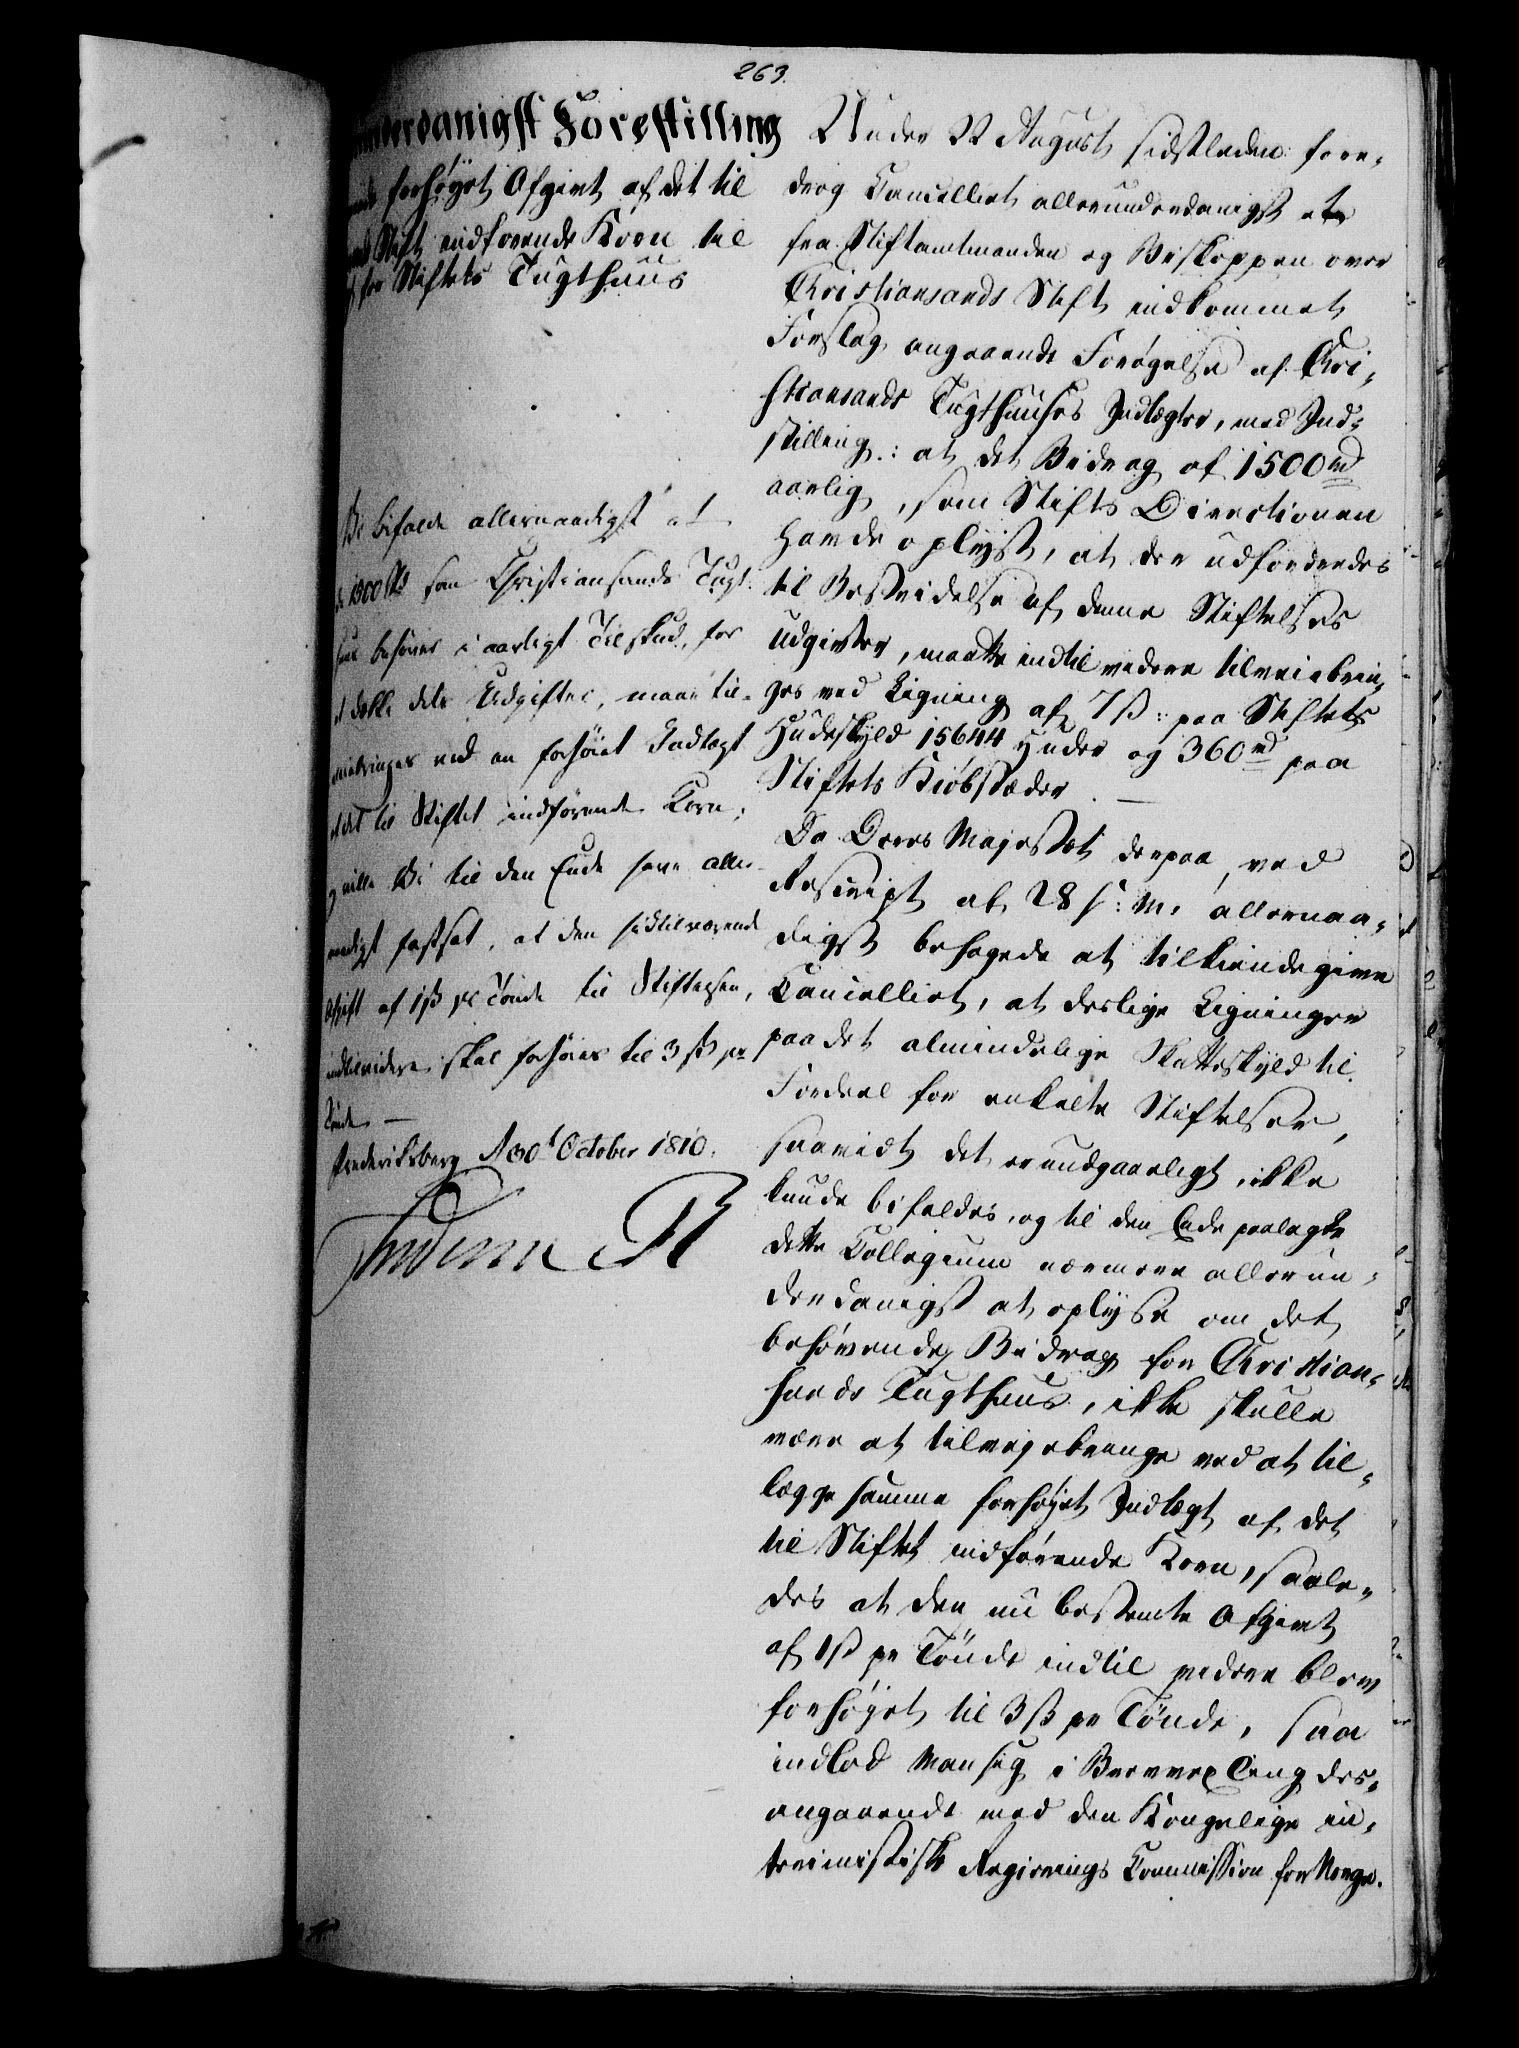 263.
underdanigst Forestilling
forhøyet Afgivt af det til
Stift indførende Korn til
for Stiftets Tugthuus
Vi bifalde allernaadigst at
de 1500 Rd som Christiansands Tugt-
huus behøver i aarligt Tilskud, for
at dekke dets Udgifter, maae til-
veiebringes ved en forhöiet Indtægt
af det til Stiftet indförende Korn;
og ville Vi til den Ende have aller-
naadigst fastsat, at den hidtilværende
Afgift af 1 ß pr Tönde til Stiftelsen,
indtilvidere skal forhöies til 3 ß pr
Tönde —
Frederiksberg d 30t October 1810.
Frederik R
Under 22 August sidstleden fore-
drog Cancelliet allerunderdanigst et
fra Stiftamtmanden og Biskoppen over
Christiansands Stift indkommet
Forslag angaaende Forøgelse af Chri-
stiansands Tugthuuses Indtægter, med Ind-
stilling: at det Bidrag af 1500 rd
aarlig, som Stifts Directionen
havde oplyst, at der udfordredes
til Bestridelse af denne Stiftelses
Udgivter, maatte indtil videre tilveiebrin-
ges ved Ligning af 7 ß: paa Stiftets
Hudeskyld 15644 Huder og 360 rd paa
Stiftets Kiøbstæder. —
Da Deres Majestæt derpaa, ved
Rescript af 28 s: M: allernaa-
digst behagede at tilkiendegive
Cancelliet, at deslige Ligninger
paa det almindelige Skatteskyld til
Fordeel for enkelte Stiftelser,
saavidt det er undgaaeligt, ikke
kunde bifaldes, og til den Ende paalagde
dette Collegium nærmere allerun-
derdanigst at oplyse om det
behøvende Bidrag for Christian-
sands Tugthuus, ikke skulle
være at tilvejebringe ved at til-
lægge samme forhøyet Indtægt af det
til Stiftet indførende Korn, saale-
des at den nu bestemte Afgivt
af 1 ß pr Tönde indtil videre blev
forhøyet til 3 ß pr Tönde, saa
indlod man sig i Brevvexling des-
angaaende med den Kongelige in-
terimistiske Regierings Commission for Norge.